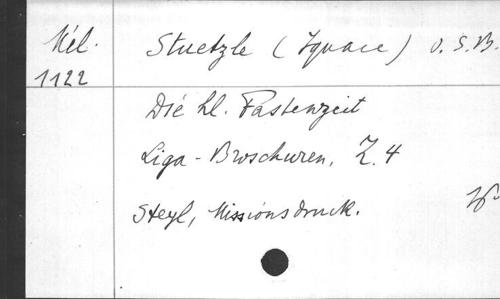 Mél. Stuetzle (Ignace) O.S.B.
1122
Die hl. Fastenzeit
Liga-Broschuren, Z.4
Steyl, Missionsdruck.